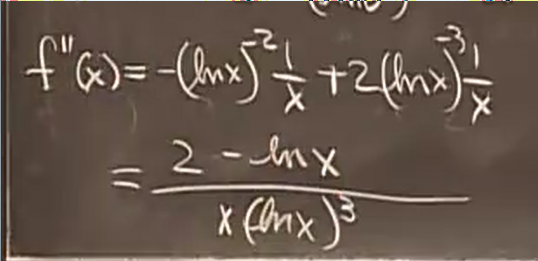 f''(x) = -(lnx)^{-2} \frac{1}{x} + 2(lnx)^{-3} \frac{1}{x}
= \frac{2 - lnx}{x(lnx)^3}